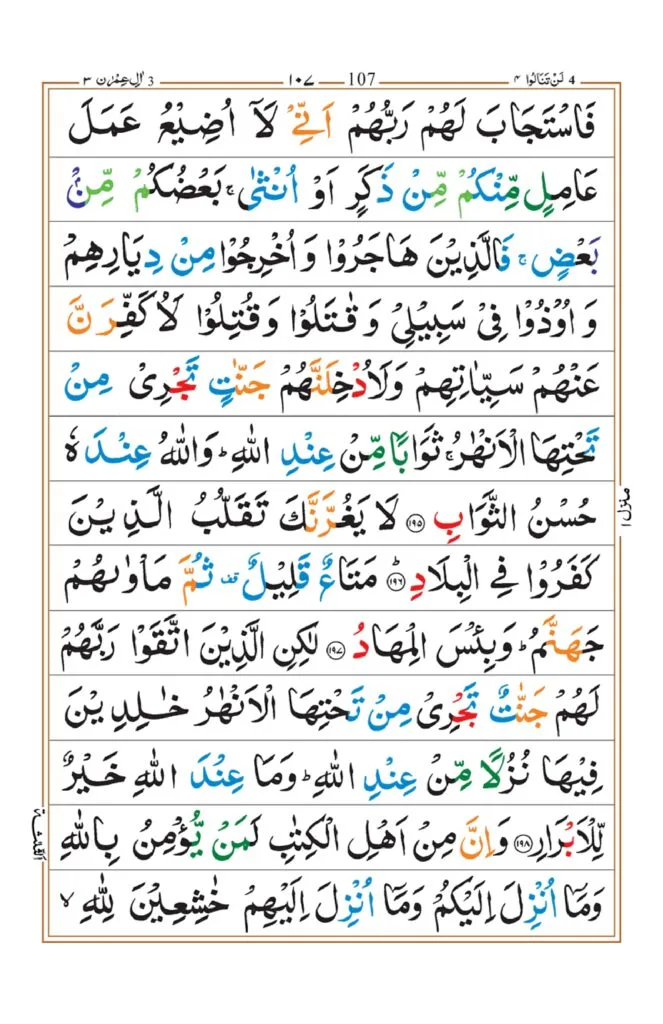 4 لَنْ تَنَالُوا ۴ 107 ١٠٧ 3 اٰلِ عِمْرٰن ۳
فَاسْتَجَابَ لَهُمْ رَبُّهُمْ اَنِّیْ لَاۤ اُضِیْعُ عَمَلَ
عَامِلٍ مِّنْكُمْ مِّنْ ذَكَرٍ اَوْ اُنْثٰی ۚ بَعْضُكُمْ مِّنْۢ
بَعْضٍ ۚ فَالَّذِیْنَ هَاجَرُوْا وَ اُخْرِجُوْا مِنْ دِیَارِهِمْ
وَ اُوْذُوْا فِیْ سَبِیْلِیْ وَ قٰتَلُوْا وَ قُتِلُوْا لَاُ كَفِّرَنَّ
عَنْهُمْ سَیِّاٰتِهِمْ وَلَاُدْخِلَنَّهُمْ جَنّٰتٍ تَجْرِیْ مِنْ
تَحْتِهَا الْاَنْهٰرُ ۚ ثَوَابًا مِّنْ عِنْدِ اللّٰهِ ؕ وَاللّٰهُ عِنْدَهٗ
حُسْنُ الثَّوَابِ ﴿۱۹۵﴾ لَا یَغُرَّنَّكَ تَقَلُّبُ الَّذِیْنَ
كَفَرُوْا فِی الْبِلَادِ ﴿۱۹۶﴾ؕ مَتَاعٌ قَلِیْلٌ ۫ ثُمَّ مَاْوٰىهُمْ
جَهَنَّمُ ؕ وَبِئْسَ الْمِهَادُ ﴿۱۹۷﴾ لٰكِنِ الَّذِیْنَ اتَّقَوْا رَبَّهُمْ
لَهُمْ جَنّٰتٌ تَجْرِیْ مِنْ تَحْتِهَا الْاَنْهٰرُ خٰلِدِیْنَ
فِیْهَا نُزُلًا مِّنْ عِنْدِ اللّٰهِ ؕ وَمَا عِنْدَ اللّٰهِ خَیْرٌ
لِّلْاَبْرَارِ ﴿۱۹۸﴾ وَاِنَّ مِنْ اَهْلِ الْكِتٰبِ لَمَنْ یُّؤْمِنُ بِاللّٰهِ
وَمَاۤ اُنْزِلَ اِلَیْكُمْ وَمَاۤ اُنْزِلَ اِلَیْهِمْ خٰشِعِیْنَ لِلّٰهِ ۙ
منزل ۱
الثلٰثة